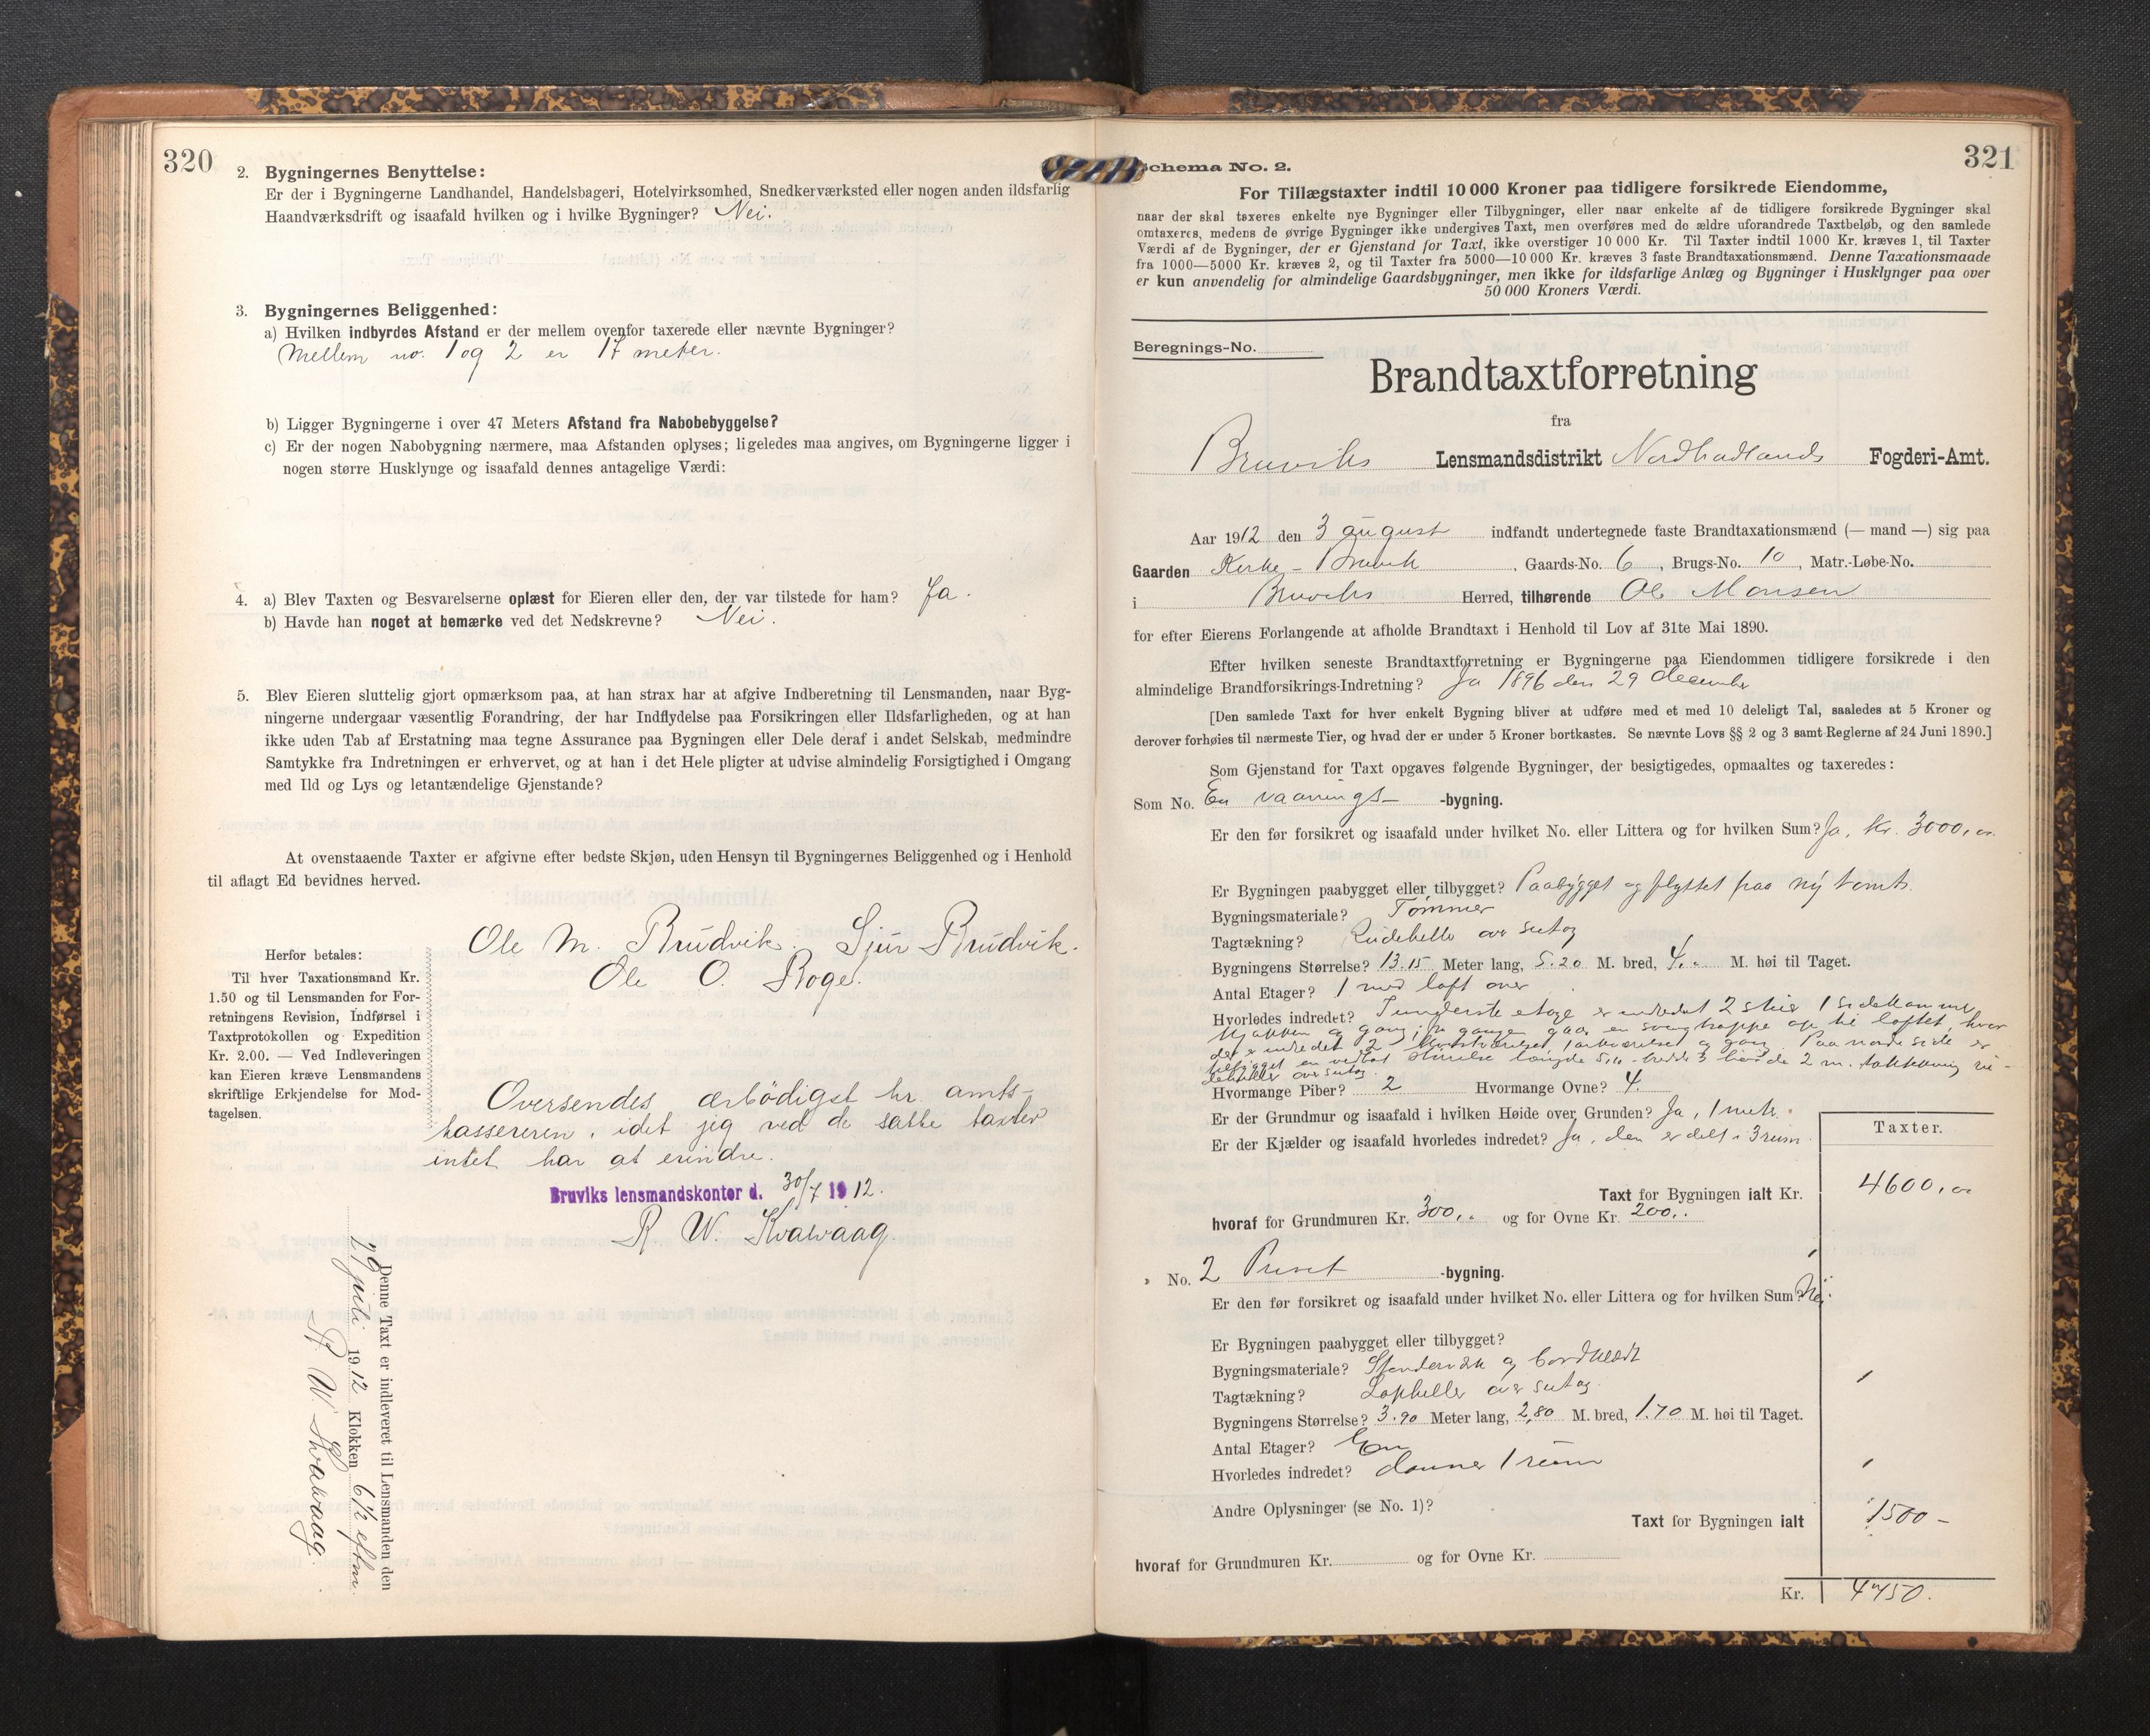 320
2. Bygningernes Benyttelse:
Er der i Bygningerne Landhandel, Handelsbageri, Hotelvirksomhed, Snedkerværksted eller nogen anden ildsfarlig
Haandværksdrift og isaafald hvilken og i hvilke Bygninger? Nei.
3. Bygningernes Beliggenhed:
a) Hvilken indbyrdes Afstand er der mellem ovenfor taxerede eller nævnte Bygninger?
Mellem no. 1 og 2 er 17 meter.
b) Ligger Bygningerne i over 47 Meters Afstand fra Nabobebyggelse?
c) Er der nogen Nabobygning nærmere, maa Afstanden oplyses; ligeledes maa angives, om Bygningerne ligger i
nogen større Husklynge og isaafald dennes antagelige Værdi:
4. a) Blev Taxten og Besvarelserne oplæst for Eieren eller den, der var tilstede for ham? Ja.
b) Havde han noget at bemærke ved det Nedskrevne? Nei.
5. Blev Eieren sluttelig gjort opmærksom paa, at han strax har at afgive Indberetning til Lensmanden, naar Byg-
ningerne undergaar væsentlig Forandring, der har Indflydelse paa Forsikringen eller Ildsfarligheden, og at han
ikke uden Tab af Erstatning maa tegne Assurance paa Bygningen eller Dele deraf i andet Selskab, medmindre
Samtykke fra Indretningen er erhvervet, og at han i det Hele pligter at udvise almindelig Forsigtighed i Omgang
med Ild og Lys og letantændelige Gjenstande?
At ovenstaaende Taxter er afgivne efter bedste Skjøn, uden Hensyn til Bygningernes Beliggenhed og i Henhold
til aflagt Ed bevidnes herved.
Ole M. Brudvik. Sjur Brudvik.
Ole O. Roge.
Herfor betales:
Til hver Taxationsmand Kr.
1.50 og til Lensmanden for For-
retningens Revision, Indførsel i
Taxtprotokollen og Expedition
Kr. 2.00. — Ved Indleveringen
kan Eieren kræve Lensmandens
skriftlige Erkjendelse for Mod-
tagelsen.
Oversendes ærbödigst hr. amts-
kassereren, idet jeg ved de satte taxter
intet har at erindre.
Bruviks lensmandskontor d. 30/7 1912.
R. W. Kvawaag.
Denne Taxt er indleveret til Lensmanden den
29 juli 1912 Klokken 6 1/2 eftm.
R. W. Kvawaag.
321
Schema No. 2.
For Tillægstaxter indtil 10 000 Kroner paa tidligere forsikrede Eiendomme,
naar der skal taxeres enkelte nye Bygninger eller Tilbygninger, eller naar enkelte af de tidligere forsikrede Bygninger skal
omtaxeres, medens de øvrige Bygninger ikke undergives Taxt, men overføres med de ældre uforandrede Taxtbeløb, og den samlede
Værdi af de Bygninger, der er Gjenstand for Taxt, ikke overstiger 10 000 Kr. Til Taxter indtil 1000 Kr. kræves 1, til Taxter
fra 1000—5000 Kr. kræves 2, og til Taxter fra 5000—10 000 Kr. kræves 3 faste Brandtaxationsmænd. Denne Taxationsmaade
er kun anvendelig for almindelige Gaardsbygninger, men ikke for ildsfarlige Anlæg og Bygninger i Husklynger paa over
50 000 Kroners Værdi.
Beregnings-No.
Brandtaxtforretning
fra
Bruviks Lensmandsdistrikt Nordhordlands Fogderi-Amt.
Aar 1912 den 3 august indfandt undertegnede faste Brandtaxationsmænd (— mand —) sig paa
Gaarden Kirke-Bruvik, Gaards-No. 6, Brugs-No. 10, Matr.-Løbe-No.
i Bruviks Herred, tilhørende Ole Monsen
for efter Eierens Forlangende at afholde Brandtaxt i Henhold til Lov af 31te Mai 1890.
Efter hvilken seneste Brandtaxtforretning er Bygningerne paa Eiendommen tidligere forsikrede i den
almindelige Brandforsikrings-Indretning? Ja 1896 den 29 december
[Den samlede Taxt for hver enkelt Bygning bliver at udføre med et med 10 deleligt Tal, saaledes at 5 Kroner og
derover forhøies til nærmeste Tier, og hvad der er under 5 Kroner bortkastes. Se nævnte Lovs §§ 2 og 3 samt Reglerne af 24 Juni 1890.]
Som Gjenstand for Taxt opgaves følgende Bygninger, der besigtigedes, opmaaltes og taxeredes:
Som No. En vaanings- -bygning.
Er den før forsikret og isaafald under hvilket No. eller Littera og for hvilken Sum? Ja, kr. 3000,
Er Bygningen paabygget eller tilbygget? Paabygget og flyttet paa ny tomt.
Bygningsmateriale? Tømmer
Tagtækning? Rudeheller over sutag
Bygningens Størrelse? 13.15 Meter lang, 5.20 M. bred, 4. M. høi til Taget.
Antal Etager? 1 med loft over
Hvorledes indredet? I underste etage er indredet 2 stuer 1 sidekammer
kjøkken og gang; fra gangen gaar en svingtrappe op til loftet, hvor
der er indredet 2 og gang. Paa nordre side er
tilbygget en størrelse længde 5,10 bredde 3 høide 2 m.
over sutag.
Hvormange Piber? 2 Hvormange Ovne? 4.
Er der Grundmur og isaafald i hvilken Høide over Grunden? Ja, 1 mete.
Er der Kjælder og isaafald hvorledes indredet? Ja, den er delt i 3 rum.
Taxter.
Taxt for Bygningen ialt Kr. 4600,
hvoraf for Grundmuren Kr. 300,. og for Ovne Kr. 200..
No. 2 Privet -bygning.
Er den før forsikret og isaafald under hvilket No. eller Littera og for hvilken Sum? Nei.
Er Bygningen paabygget eller tilbygget?
Bygningsmateriale? Stenderværk og bordklædt
Tagtækning? Lapheller over sutag.
Bygningens Størrelse? 3.90 Meter lang, 2,80 M. bred, 1.70 M. høi til Taget.
Antal Etager? En
Hvorledes indredet? danner 1 rum
Andre Oplysninger (se No. 1)?
Taxt for Bygningen ialt 1500 -
hvoraf for Grundmuren Kr. og for Ovne Kr.
Kr. 4750.